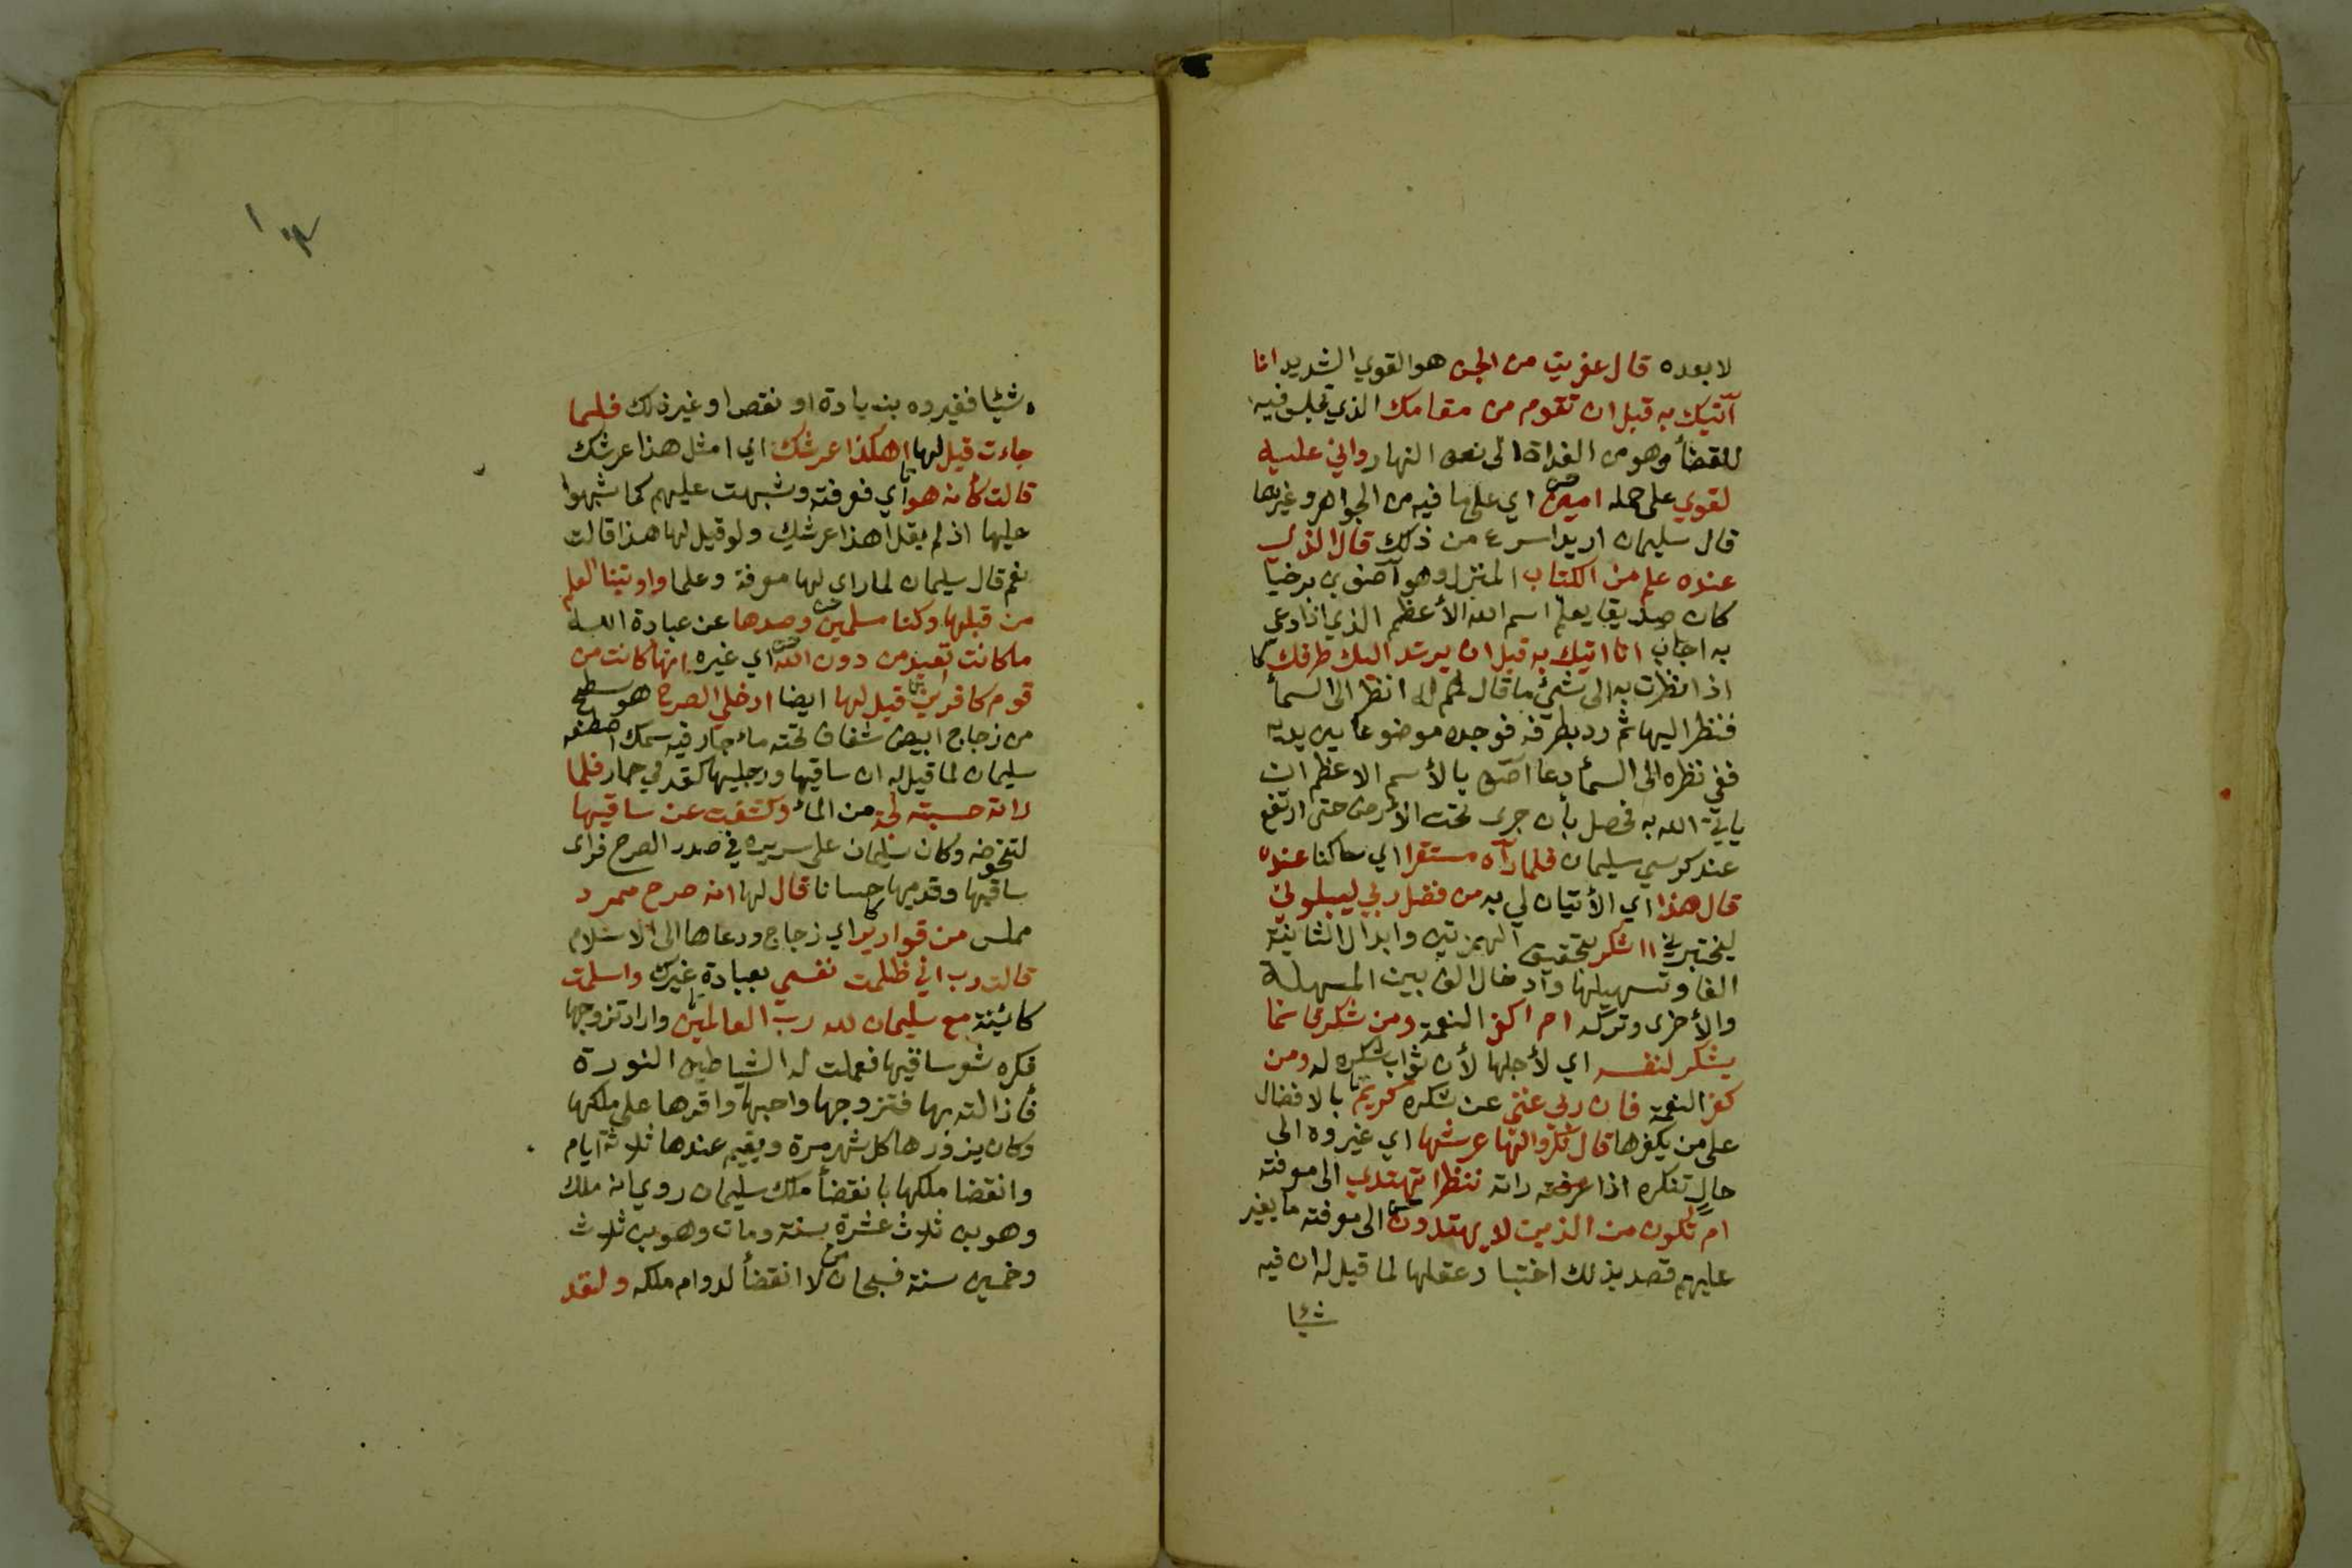 لا بعده قال عفريت من الجن هو القوي الشديد انا
آتيك به قبل ان تقوم من مقامك الذي تجلس فيه
للقضأ وهو من الغداة الى نصف النهار واني عليه
لقوي على حمله امين اي على ما فيه من الجواهر وغيرها
قال سليمان اريد اسرع من ذلك قال الذي
عنده علم من الكتاب المنزل وهو آصف بن برخيا
كان صديقا يعلم اسم الله الأعظم الذي اذا دعي
به اجاب انا اتيك به قبل ان يرتد اليك طرفك
اذا نظرت به الى شئ ما قال له انظر الى السمأ
فنظر اليها ثم رد بطرفه فوجده موضوعا بين يديه
ففي نظره الى السمأ دعا آصف بالأسم الاعظم ان
يأتي الله به فحصل بأن جرى تحت الأرض حتى ارتفع
عند كرسي سليمان فلما رآه مستقرا اي ساكنا عنده
قال هذا اي الأتيان لي به من فضل ربي ليبلوني
ليختبرني ااشكر بتحقيق الهمزتين وابدال الثانية
الفا وتسهيلها وادخال الف بين المسهلة
والأخرى وتركه ام اكفر النعمة ومن شكر فانما
يشكر لنفسه اي لأجلها لأن ثواب شكره له ومن
كفر النعمة فان ربي غني عن شكره كريم بالافضال
على من يكفرها قال نكروا لها عرشها اي غيروه الى
حال تنكره اذا عرفته راته ننظر اتهتدي الى معرفته
ام تكون من الذين لا يهتدون الى معرفته ما يغير
عليهم قصد بذلك اختبار عقلها لما قيل له ان فيه
شيا
شيئا فغيروه بزيادة او نقص او غير ذلك فلما
جاءت قيل لها اهكذا عرشك اي امثل هذا عرشك
قالت كأنه هو اي فعرفته وشبهت عليهم كما شبهوا
عليها اذ لم يقل اهذا عرشك ولو قيل لها هذا قالت
نعم قال سليمان لما راى لها معرفة وعلما واوتينا العلم
من قبلها وكنا مسلمين وصدها عن عبادة الله
ما كانت تعبد من دون الله اي غيره انها كانت من
قوم كافرين قيل لها ايضا ادخلي الصرح هو سطح
من زجاج ابيض شفاف تحته ماء جار فيه سمك اصطنعه
سليمان لما قيل له ان ساقيها ورجليها كقدمي حمار فلما
راته حسبته لجة من المأ وكشفت عن ساقيها
لتخوضه وكان سليمان على سريره في صدر الصرح فراى
ساقيها وقدميها حسانا قال لها انه صرح ممرد
مملس من قوارير اي زجاج ودعاها الى الاسلام
قالت رب اني ظلمت نفسي بعبادة غيرك واسلمت
كائنة مع سليمان لله رب العالمين واراد تزوجها
فكره شعر ساقيها فعملت له الشياطين النورة
فأزالته بها فتزوجها واحبها واقرها على ملكها
وكان يزورها كل شهر مرة ويقيم عندها ثلاثة ايام
وانقضا ملكها بانقضأ ملك سليمان روي انه ملك
وهو بن ثلاث عشرة سنة ومات وهو بن ثلاث
وخمسين سنة فسبحان من لا انقضأ لدوام ملكه ولقد